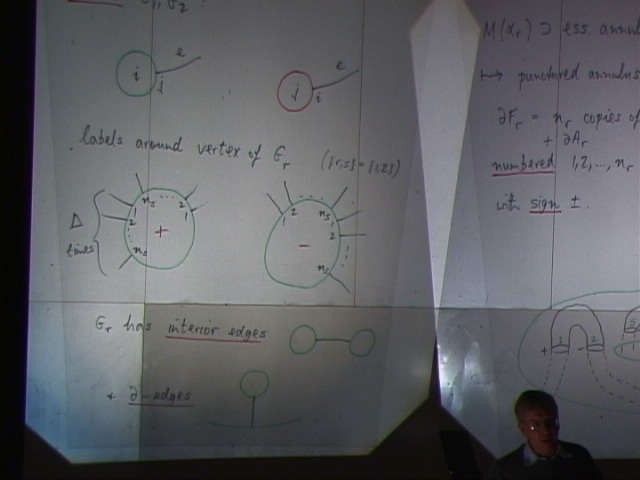 i
j
e
j
i
e
labels around vertex of G_r ({r,s} = {1,2})
Δ times
n_s 1 2 n_s 2 1
+
2 1 n_s 2 n_s
−
G_r has interior edges
+ ∂-edges
M(α_r) ⊃ ess. annul
↦ punctured annulus
∂F_r = n_r copies of
+ ∂A_r
numbered 1, 2, ..., n_r
with sign ±.
+